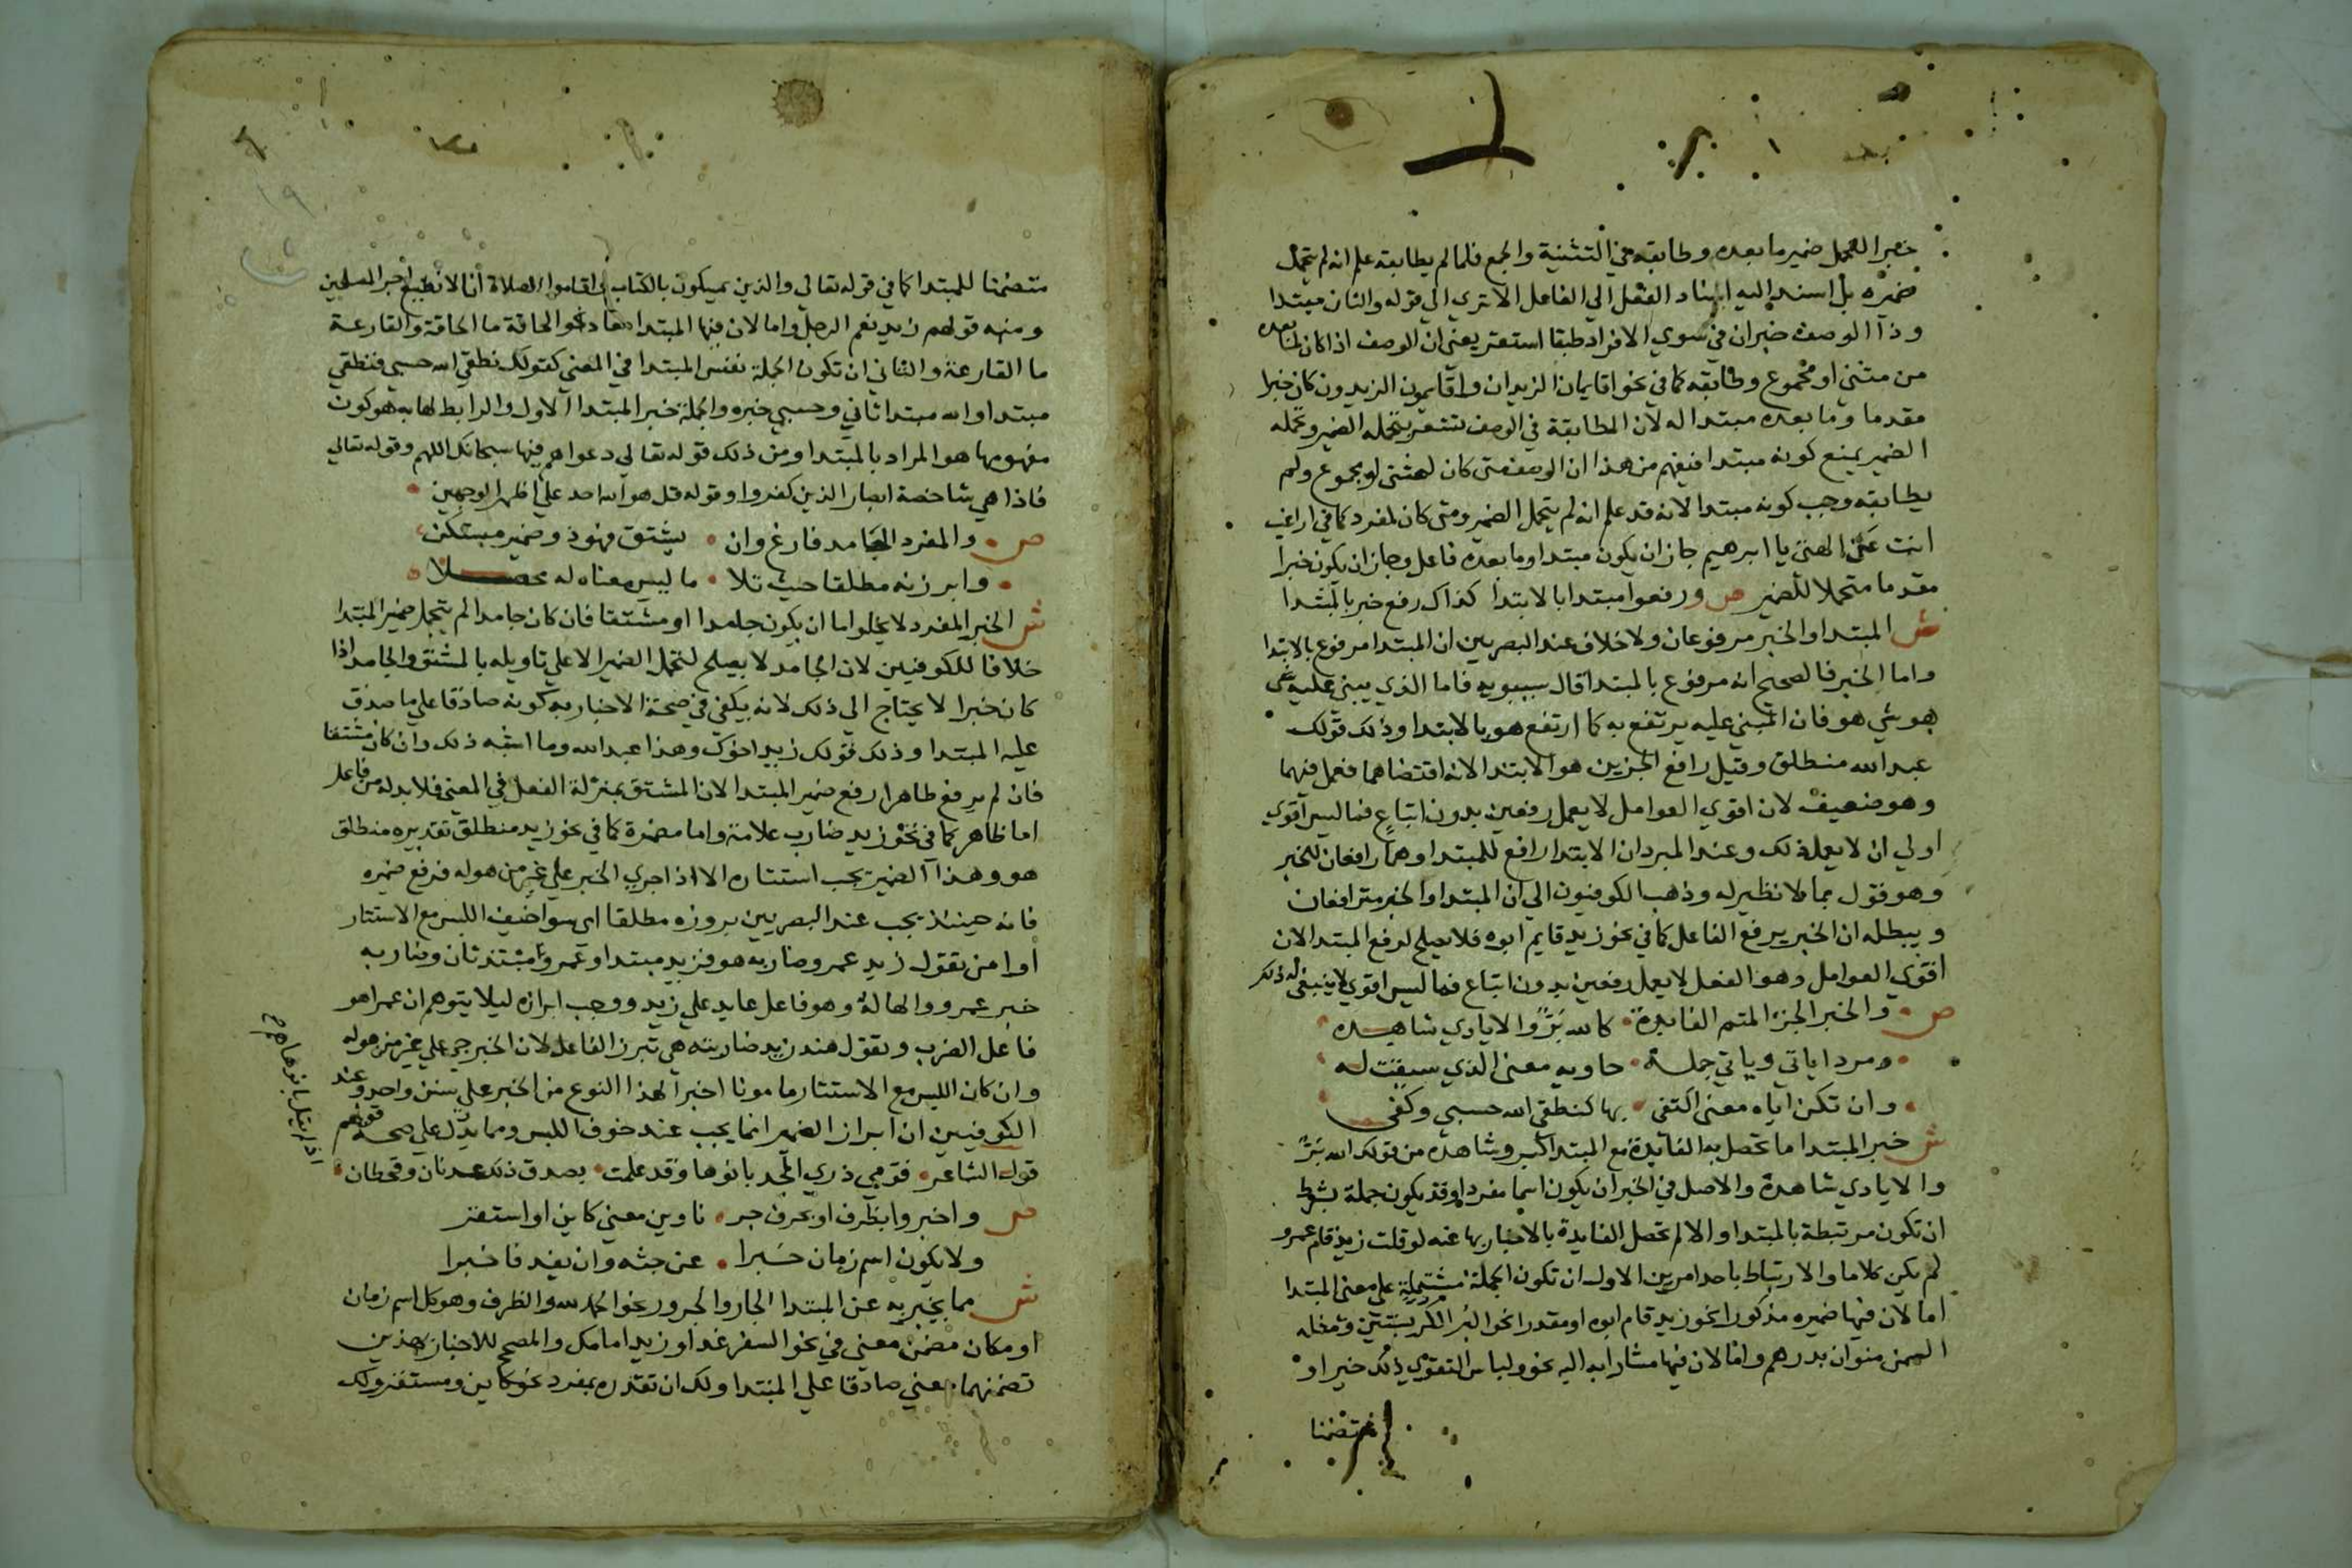 خبرا لتحمل ضمير ما بعده وطابقه في التثنية والجمع فلما لم يطابقه علم انه لم يتحمل
ضميره بل اسند اليه اسناد الفعل الي الفاعل الا تري الي قوله والثان مبتدا
وذا الوصف خبر ان في سوي الافراد طبقا استقر يعني ان الوصف اذا كان لما بعده
من مثني او مجموع وطابقه كما في نحو اقايمان الزيدان واقايمون الزيدون كان خبرا
مقدما وما بعده مبتدا له لان المطابقة في الوصف تشعر بتحمله الضمير وتحمله
الضمير يمنع كونه مبتدا فيفهم من هذا ان الوصف متى كان لمثنى او مجموع ولم
يطابقه وجب كونه مبتدا لانه قد علم انه لم يتحمل الضمير ومتى كان لمفرد كما في اراغب
انت عن الهتي يا ابرهيم جاز ان يكون مبتدا وما بعده فاعل وجاز ان يكون خبرا
مقدما متحملا للضمير ص ورفعوا مبتدا بالابتدا كذاك رفع خبر بالمبتدا
ش المبتدا والخبر مرفوعان ولا خلاف عند البصريين ان المبتدا مرفوع بالابتدا
واما الخبر فالصحيح انه مرفوع بالمبتدا قال سيبويه فاما الذي يبني عليه شي
هو شي هو فان المبني عليه يرتفع به كما ارتفع هو بالابتدا وذلك قولك
عبد الله منطلق وقيل رافع الجزين هو الابتدا لانه اقتضاهما فعمل فيهما
وهو ضعيف لان اقوي العوامل لا يعمل رفعين بدون اتباع فما ليس اقوي
اولي ان لا يعمل ذلك وعند المبرد ان الابتدا رافع للمبتدا وهما رافعان للخبر
وهو قول بما لا نظير له وذهب الكوفيون الي ان المبتدا والخبر مترافعان
ويبطله ان الخبر يرفع الفاعل كما في نحو زيد قايم ابوه فلا يصلح لرفع المبتدا لان
اقوي العوامل وهو الفعل لا يعمل رفعين بدون اتباع فما ليس اقوي لا ينبغي له ذلك
ص والخبر الجزء المتم الفايدة كالله بر والايادي شاهده
ومفردا ياتي وياتي جمله حاويه معني الذي سيقت له
وان تكن اياه معنى اكتفى بها كنطقي الله حسبي وكفى
ش خبر المبتدا ما تحصل به الفايدة مع المبتدا كبر وشاهده من قولك الله بر
والايادي شاهدة والاصل في الخبر ان يكون اسما مفردا وقد يكون جملة بشرط
ان تكون مرتبطة بالمبتدا والا لم تحصل الفايدة بالاخبار بها عنه لو قلت زيد قام عمرو
لم يكن كلاما والارتباط باحد امرين الاول ان تكون الجملة مشتملة علي معنى المبتدا
اما لان فيها ضميره مذكورا نحو زيد قام ابوه او مقدرا نحو البر الكر بستين ومثله
السمن منوان بدرهم واما لان فيها مشارا به اليه نحو ولباس التقوي ذلك خير او
متضمنا
١٩
متضمنا للمبتدا كما في قوله تعالي والذين يمسكون بالكتاب واقاموا الصلاة انا لا نضيع اجر المصلحين
ومنه قولهم زيد نعم الرجل واما لان فيها المبتدا معادا نحو الحاقة ما الحاقة والقارعة
ما القارعة والثاني ان تكون الجملة نفس المبتدا في المعني كقولك نطقي الله حسبي فنطقي
مبتدا والله مبتدا ثاني وحسبي خبره والجملة خبر المبتدا الاول والرابط لها به هو كون
مفهومها هو المراد بالمبتدا ومن ذلك قوله تعالي دعواهم فيها سبحانك اللهم وقوله تعالي
فاذا هي شاخصة ابصار الذين كفروا وقوله قل هو الله احد علي اظهر الوجهين
ص والمفرد الجامد فارغ وان يشتق فهو ذو ضمير مستكن
وابرزنه مطلقا حيث تلا ما ليس معناه له محصلا
ش الخبر المفرد لا يخلوا اما ان يكون جامدا او مشتقا فان كان جامدا لم يتحمل ضمير المبتدا
خلافا للكوفيين لان الجامد لا يصلح لتحمل الضمير الا علي تاويله بالمشتق والجامد اذا
كان خبرا لا يحتاج الي ذلك لانه يكفي في صحة الاخبار به كونه صادقا علي ما صدق
عليه المبتدا وذلك قولك زيد اخوك وهذا عبد الله وما اشبه ذلك وان كان مشتقا
فان لم يرفع ظاهرا رفع ضمير المبتدا لان المشتق بمنزلة الفعل في المعنى فلا بد له من فاعل
اما ظاهر كما في نحو زيد ضارب غلامه واما مضمرة كما في نحو زيد منطلق تقديره منطلق
هو وهذا الضمير يجب استتاره الا اذا جري الخبر علي غير من هو له فرفع ضميره
فانه حينئذ يجب عند البصريين بروزه مطلقا اي سوا خيف اللبس مع الاستتار
او امن تقول زيد عمرو ضاربه هو فزيد مبتدا وعمرو مبتدا ثان وضاربه
خبر عمرو والها له وهو فاعل عايد علي زيد ووجب ابرازه ليلا يتوهم ان عمرا هو
فاعل الضرب وتقول هند زيد ضاربته هي تبرز الفاعل لان الخبر جري علي غير من هو له
وان كان اللبس مع الاستتار مامونا اجرا لهذا النوع من الخبر علي سنن واحد وعند
الكوفيين ان ابراز الضمير انما يجب عند خوف اللبس ومما يدل علي صحة قولهم
قول الشاعر قومي ذري المجد بانوها وقد علمت بصدق ذلك عدنان وقحطان
اذ لم يقل بانوها هم
ص واخبروا بظرف او بحرف جر ناوين معني كاين او استقر
ولا يكون اسم زمان خبرا عن جثه وان يفد فاخبرا
ش مما يخبر به عن المبتدا الجار والمجرور نحو الحمد لله والظرف وهو كل اسم زمان
او مكان مضمن معنى في نحو السفر غدا وزيد امامك والمصحح للاخبار بهذين
تضمنهما معني صادقا علي المبتدا ولك ان تقدره بمفرد نحو كاين ومستقر ولك